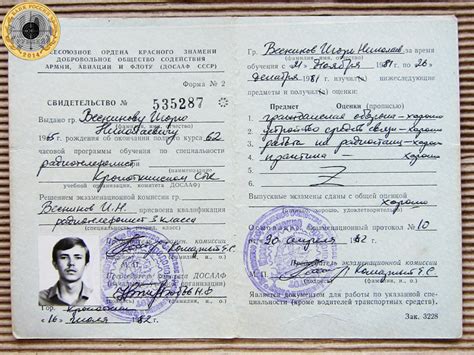 ВСЕСОЮЗНОЕ ОРДЕНА КРАСНОГО ЗНАМЕНИ
ДОБРОВОЛЬНОЕ ОБЩЕСТВО СОДЕЙСТВИЯ
АРМИИ, АВИАЦИИ И ФЛОТУ (ДОСААФ СССР)
Форма № 2
СВИДЕТЕЛЬСТВО № 535287
Выдано гр. Всеникову Игорю
(фамилия, имя,
Николаевичу
отчество)
1965 рождения об окончании полного курса 62
часовой программы обучения по специальности
радиотелефонист
в Кропоткинском СТК
(учебной организации, комитета ДОСААФ)
Решением экзаменационной комиссии гр.
Всеников И.Н. присвоена квалификация
радиотелефонист 3 класса
экзаменационной комиссии
(фамилия, и., о.)
М.П.
(фамилия, и., о.)
Гор. Кропоткин
«16» июля 1982 г.
Гр. Всеников Игорь Николаев. за время
(фамилия, имя, отчество)
обучения с 21 ноября 1981 по 26
декабря 1981 изучил(а) нижеследующие
предметы и показал(а) знания:
Предмет Оценки (прописью)
1. гражданская оборона - хорошо
2. устройство средств связи - хорошо
3. работа на радиостанц - хорошо
4. практика - хорошо
5.
6.
7.
Выпускные экзамены сдал(а) с общей оценкой
хорошо
Основание: экзаменационный протокол № 10
от 20 апреля 1982 г.
Председатель экзаменационной комиссии
М.П.
(фамилия, и., о.)
Является документом для работы по указанной
специальности (кроме водителей транспортных средств).
Зак. 3228